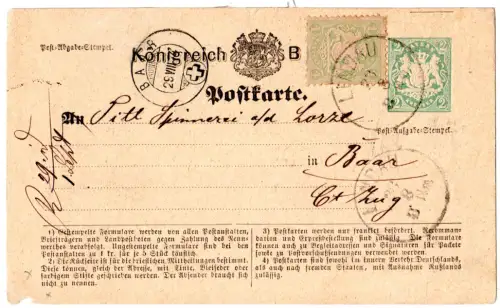 Post-Abgabe-Stempel.
Königreich B
BAAR
29 VIII 7
LINDAU
Postkarte.
Post-Aufgabe-Stempel.
An Titl Spinnerei a/d Lorze
in Baar
Ct Zug
LINDAU
1) Gestempelte Formulare werden von allen Postanstalten,
Briefträgern und Landpostboten gegen Zahlung des Nenn-
werthes verabfolgt. Ungestempelte Formulare sind bei den
Postanstalten zu kr. für je Stück käuflich.
2) Die Rückseite ist für die brieflichen Mittheilungen bestimmt.
Diese können, gleich der Adresse, mit Tinte, Bleifeder oder
farbigen Stiften geschrieben werden. Der Absender braucht sich
nicht zu nennen.
3) Postkarten werden nur frankirt befördert. Recomman-
dation und Expreßbestellung sind zulässig. Die Formulare
können auch zu Begleitadressen und Signaturen für Packete
sowie zu Postvorschußsendungen verwendet werden.
4) Postkarten sind sowohl im inneren Verkehr Deutschlands,
als auch nach fremden Staaten, mit Ausnahme Rußlands
zulässig.